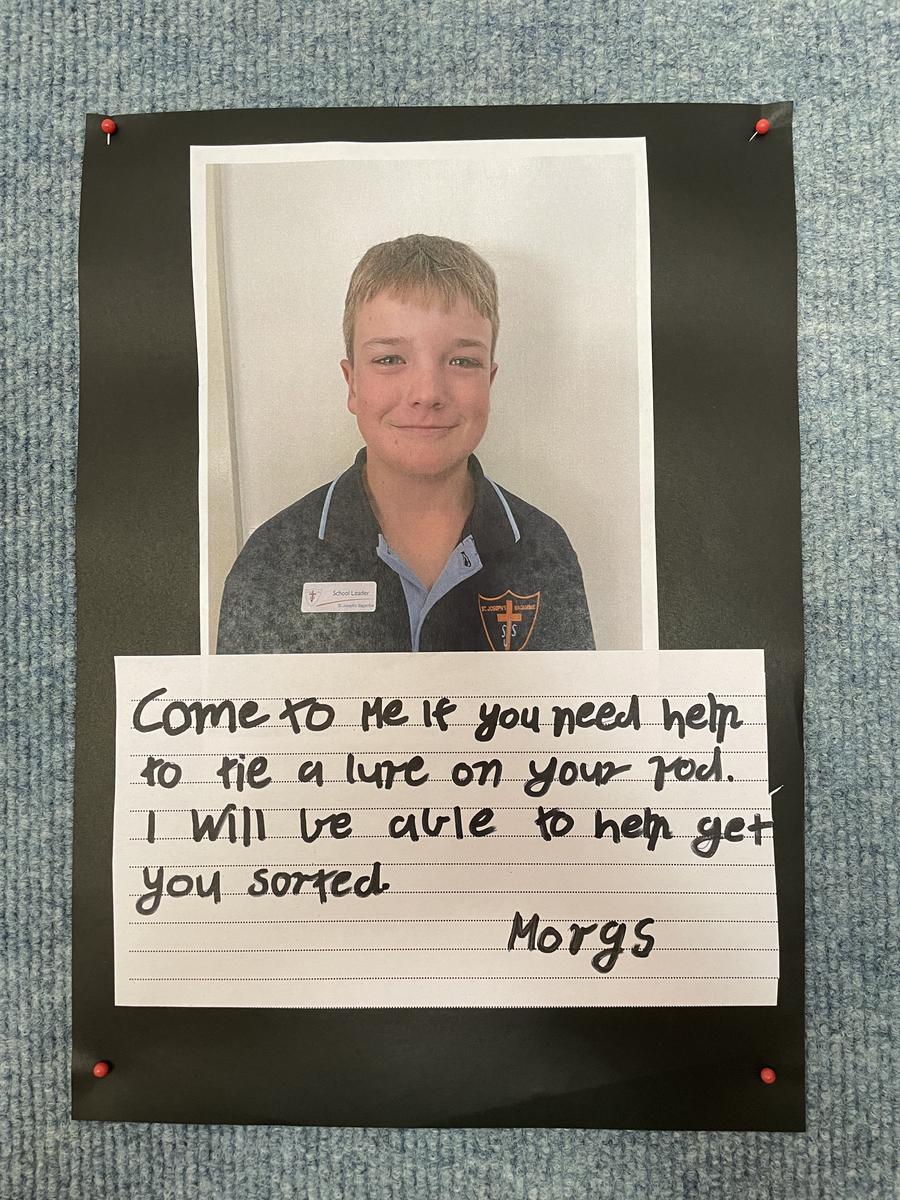 School Leader
St Joseph's Nagambie
ST. JOSEPH'S NAGAMBIE
SJS
Come to Me If you need help
to tie a lure on your rod.
I Will be able to help get
you sorted.
Morgs